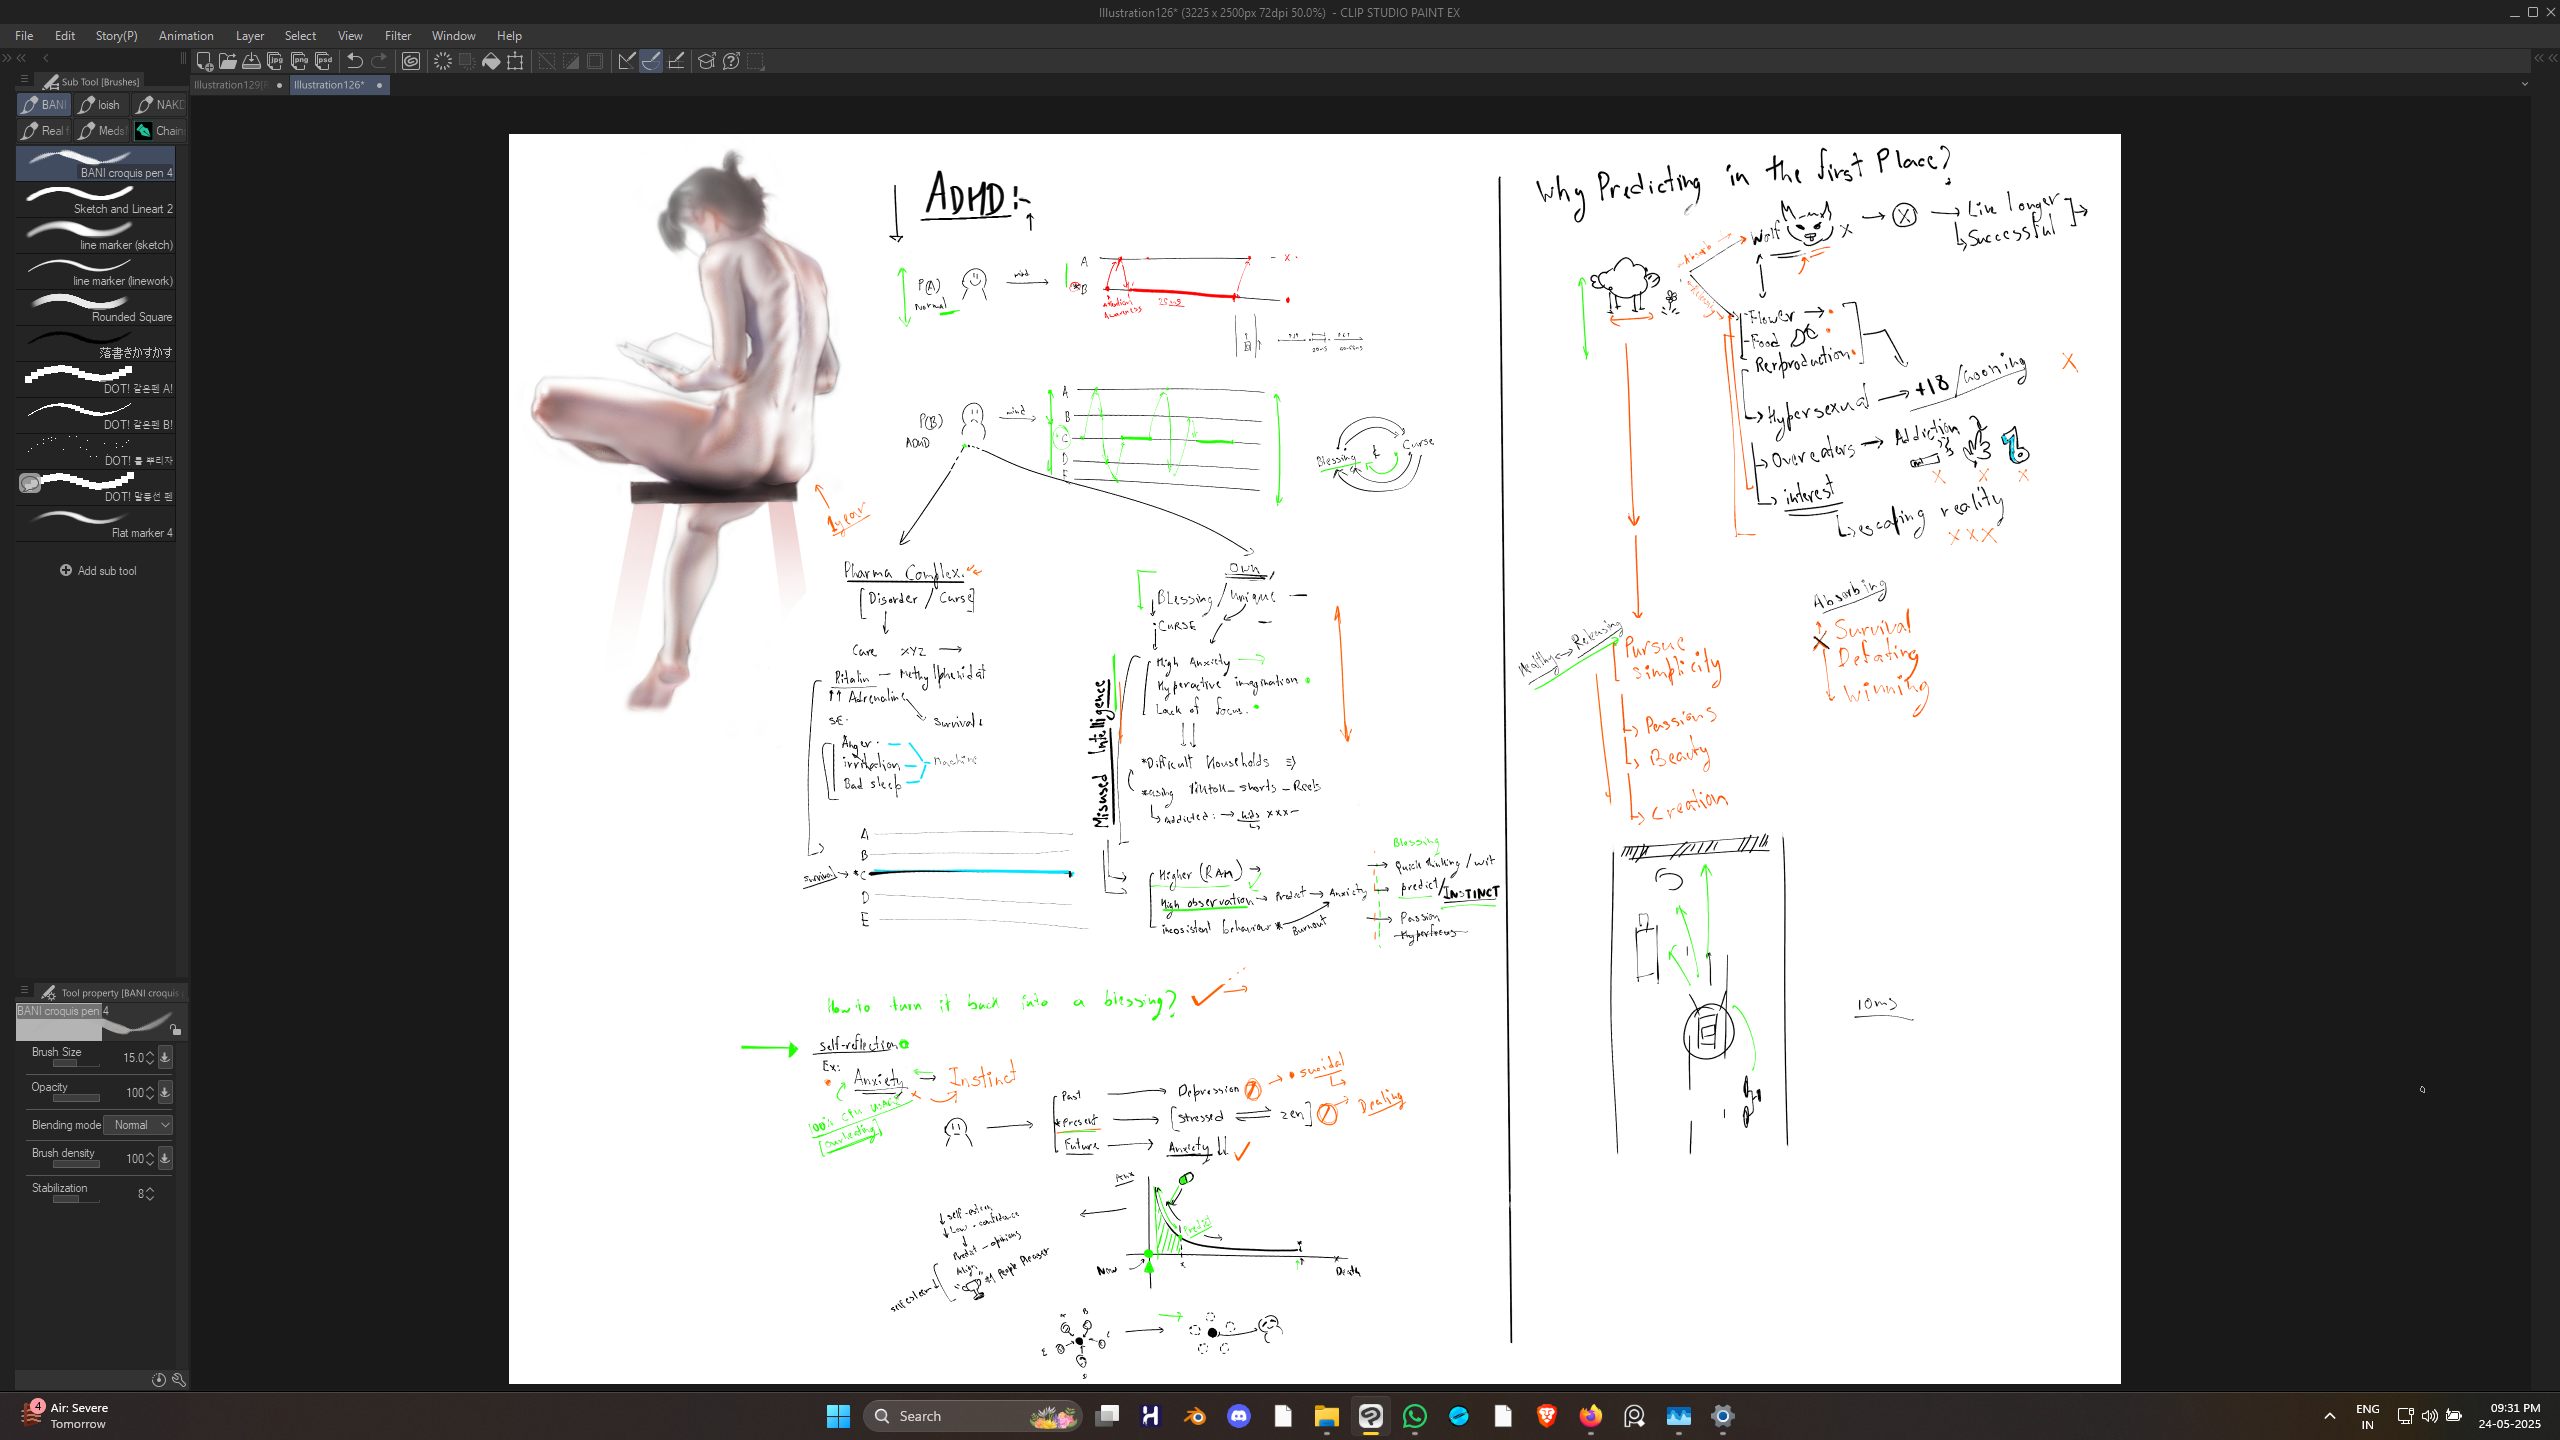 Illustration126* (3225 x 2500px 72dpi 50.0%) - CLIP STUDIO PAINT EX
File Edit Story(P) Animation Layer Select View Filter Window Help
Sub Tool [Brushes]
Illustration126*
BANI loish NAKD
Real f Meds Chain
BANI croquis pen 4
Sketch and Lineart 2
line marker (sketch)
line marker (linework)
Rounded Square
落書きかすかす
DOT! 같은펜 A!
DOT! 같은펜 B!
DOT! 툴 뿌리자
DOT! 말풍선 펜
Flat marker 4
Add sub tool
Tool property [BANI croquis
BANI croquis pen 4
Brush Size 15.0
Opacity 100
Blending mode Normal
Brush density 100
Stabilization 8
ADHD:-
P(A)
Normal
mind
A
*B
Attention
Awareness
25ms
P(B)
ADHD
mind
A
B
C
D
E
Blessing & Curse
1year
Pharma Complex.
[Disorder / Curse]
Care XYZ
Ritalin - Methylphenidat
↑↑ Adrenaline
Survival
SE.
Anger
irritation
Bad sleep
machine
A
B
survival → *C
D
E
Own
Blessing / Unique
CURSE
High Anxiety
Hyperactive imagination
Lack of focus.
Misused Intelligence
*Difficult Households
*using Tiktok_ shorts _ Reels
addicted: → kids xxx
Higher (RAM) →
High observation → Predict → Anxiety
incosistent behaviour * Burnout
Blessing
Quick thinking / wit
predict / INSTINCT
Passion
Hyperfocus
How to turn it back into a blessing?
self-reflection
Ex:
Anxiety → Instinct
100% CPU usage
[overheating]
Past → Depression → suoidal
*Present → [stressed ⇌ zen] → Dealing
Future → Anxiety ↓↓
Anx
Predict
Now
Death
↓ self-esteem
↓ Low - confidence
Predict - opinions
Align
#1 People Pleaser
self esteem
A B C D E
Why Predicting in the first Place?
Wolf X → ⊗ → Live longer
↳ Successful
Absorb
Releasing
- Flower →
- Food
Rerproduction
↳ Hypersexual → +18 / Gooning X
↳ Overeaters → Addiction
X X X
↳ interest
↳ escaping reality
X X X
Healthy ↔ Releasing
Pursue
simplicity
↳ Passions
↳ Beauty
↳ Creation
Absorbing
Survival
Defating
Winning
10ms
4
Air: Severe
Tomorrow
Search
ENG
IN
09:31 PM
24-05-2025